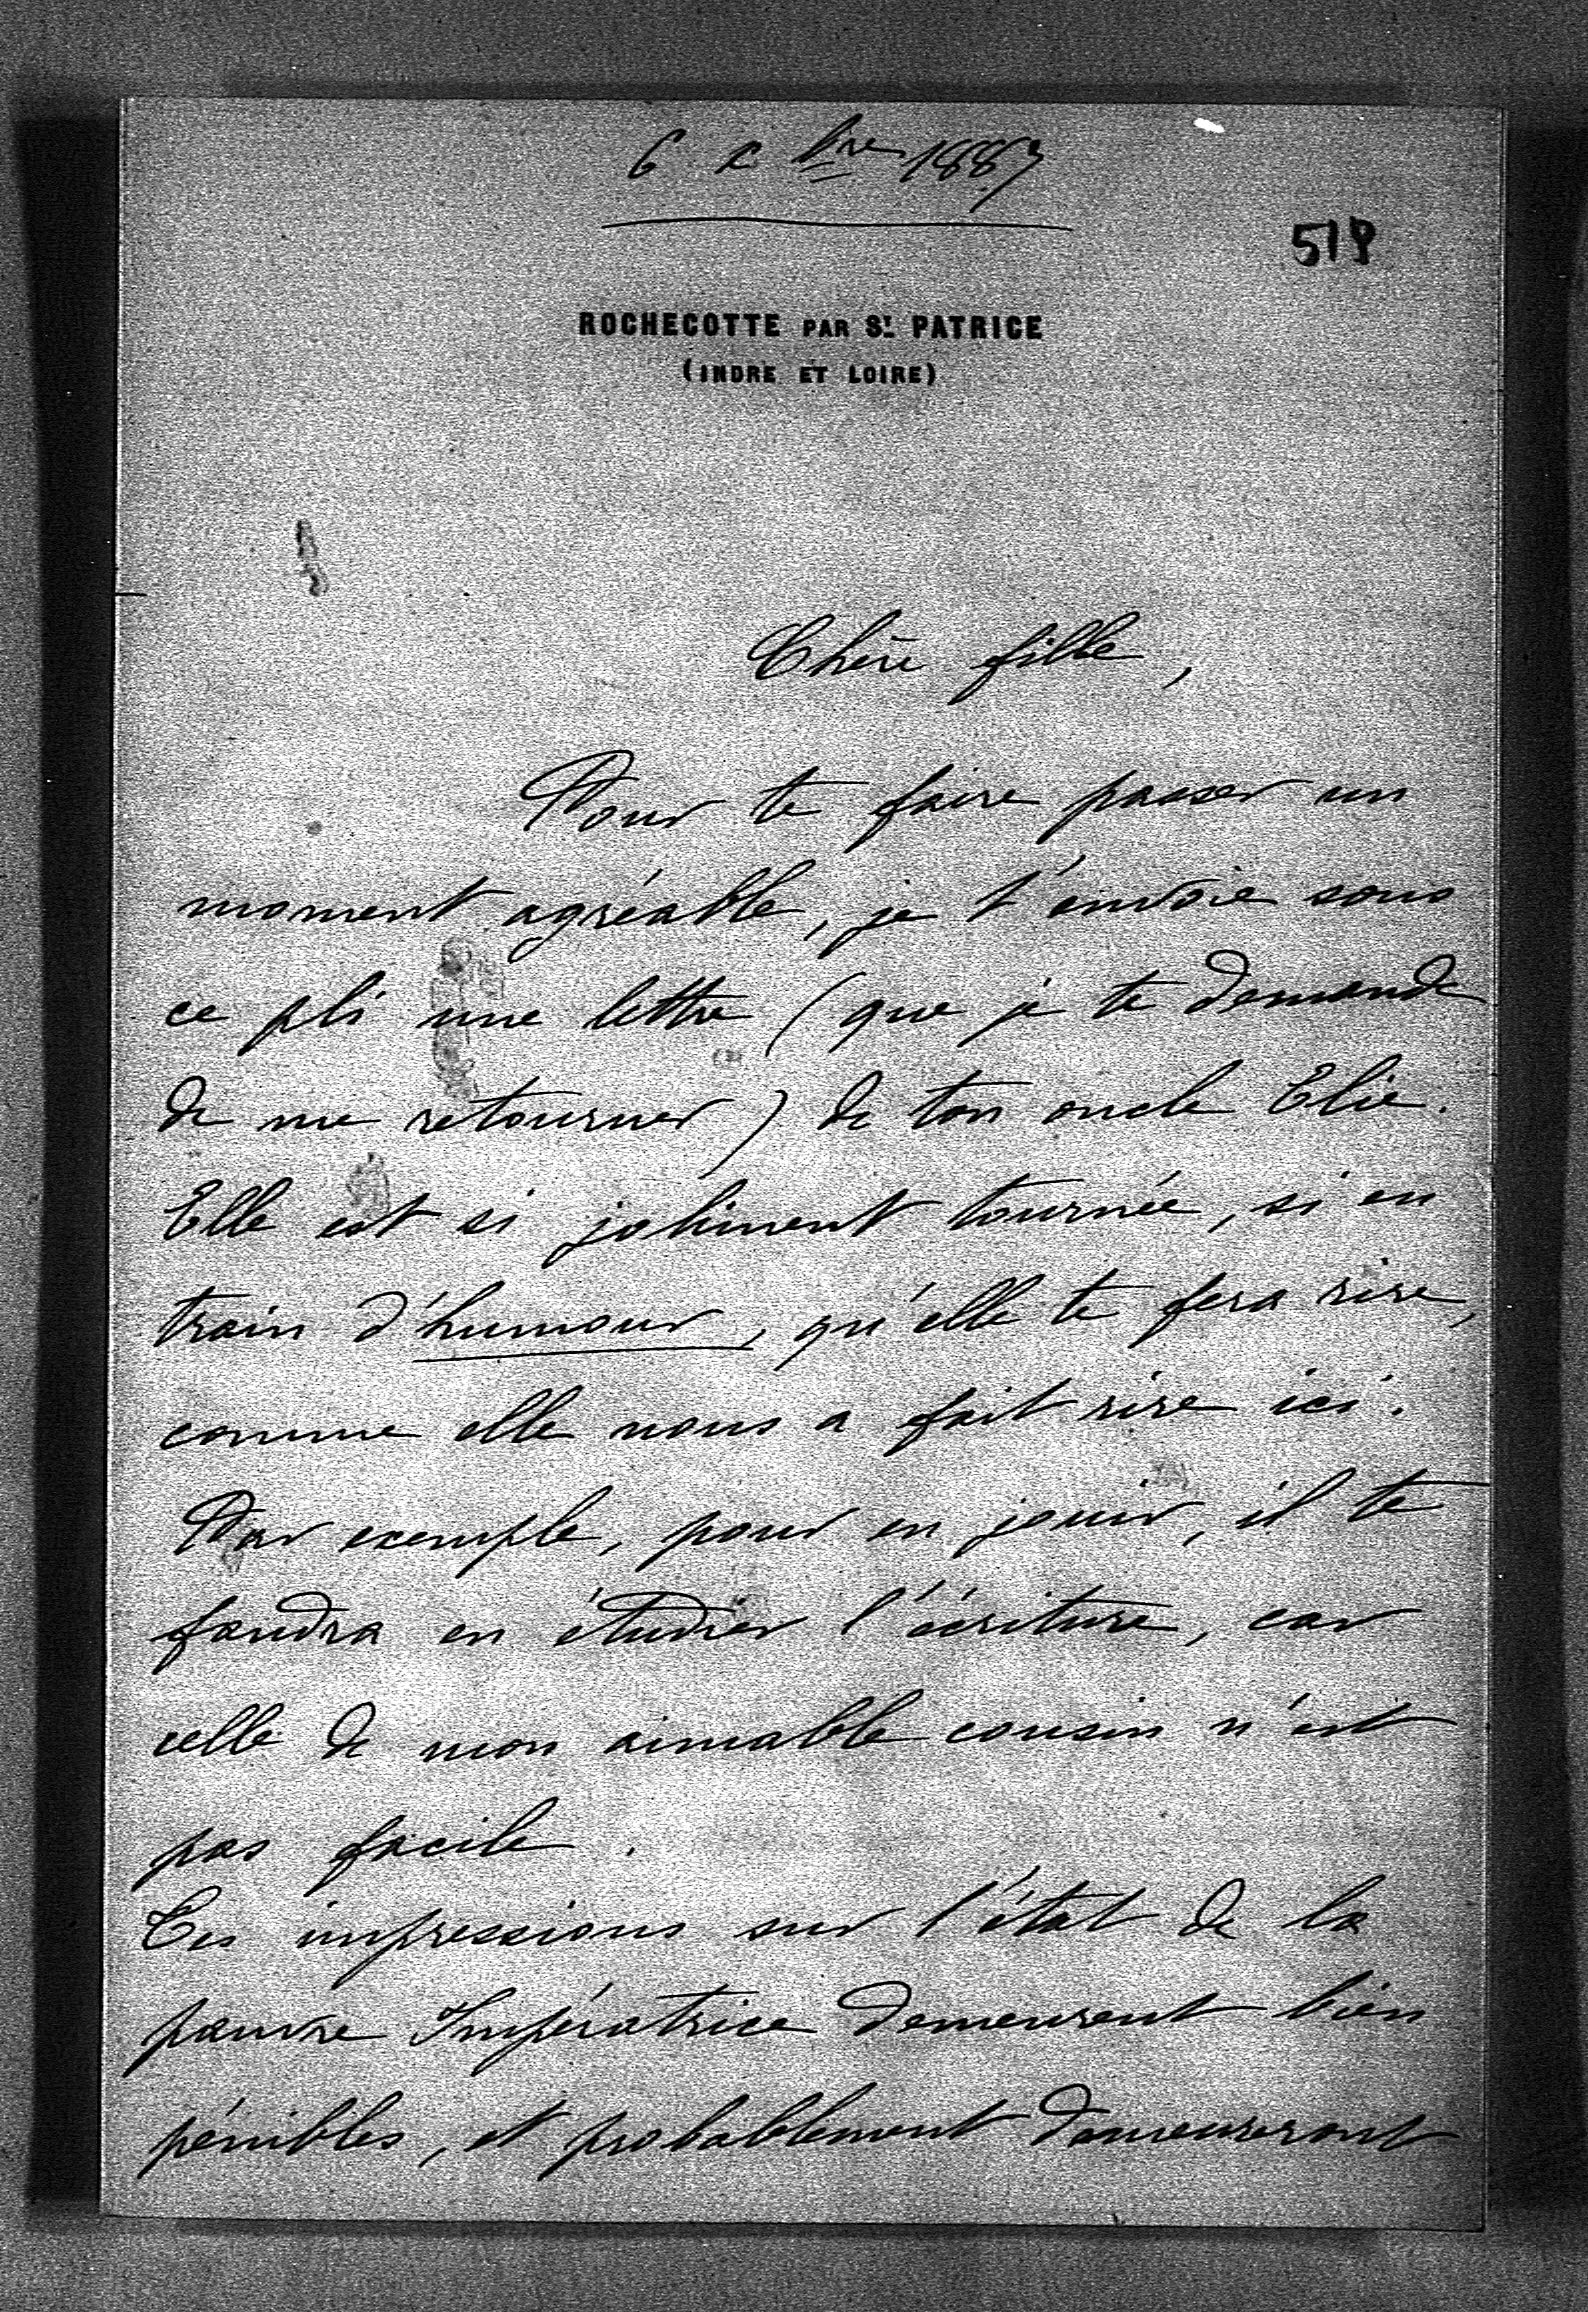 6 Xbre 1887
519
ROCHECOTTE PAR ST. PATRICE
(INDRE ET LOIRE)
Chère fille,
Pour te faire passer un
moment agréable, je t'envoie sous
ce pli une lettre (que je te demande
de me retourner) de ton oncle Elie.
Elle est si joliment tournée, si en
train d'humour, qu'elle te fera rire,
comme elle nous a fait rire ici.
Par exemple, pour en jouir, il te
faudra en étudier l'écriture, car
celle de mon aimable cousin n'est
pas facile.
Tes impressions sur l'état de la
pauvre Impératrice demeurent bien
pénibles, et probablement demeureront